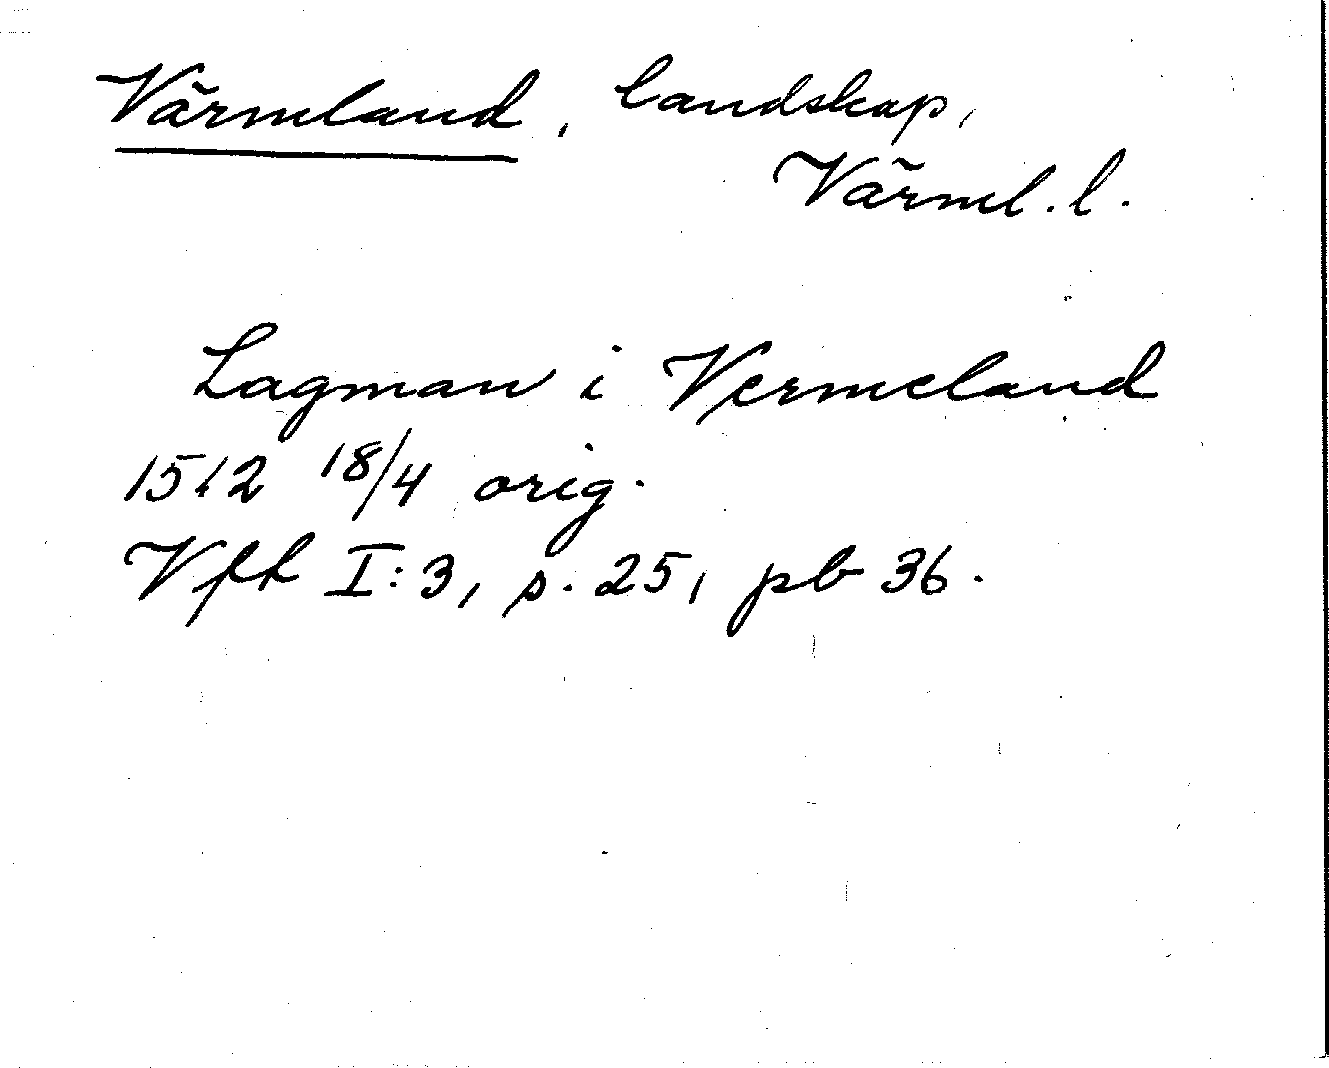 Värmeland, landskap,
Värml. l.
Lagman i Vermeland
1512 18/4 orig.
Vfh I:3, s. 25, pb 36.